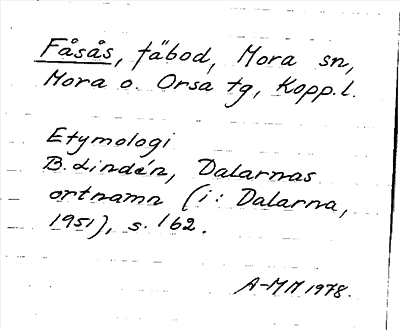 Fåsås, fäbod, Mora sn,
Mora o. Orsa tg, Kopp.l.
Etymologi
B. Lindén, Dalarnas
ortnamn (i: Dalarna,
1951), s. 162.
A-MM 1978.